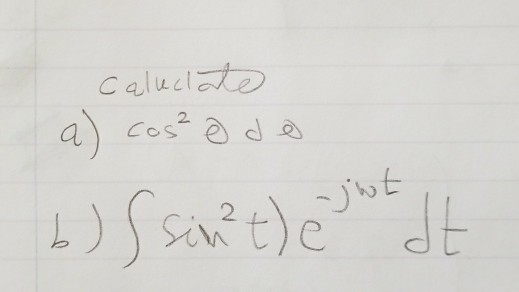 caluclate
a) cos² θ d θ
b) ∫ sin² t) e^{-jwt} dt